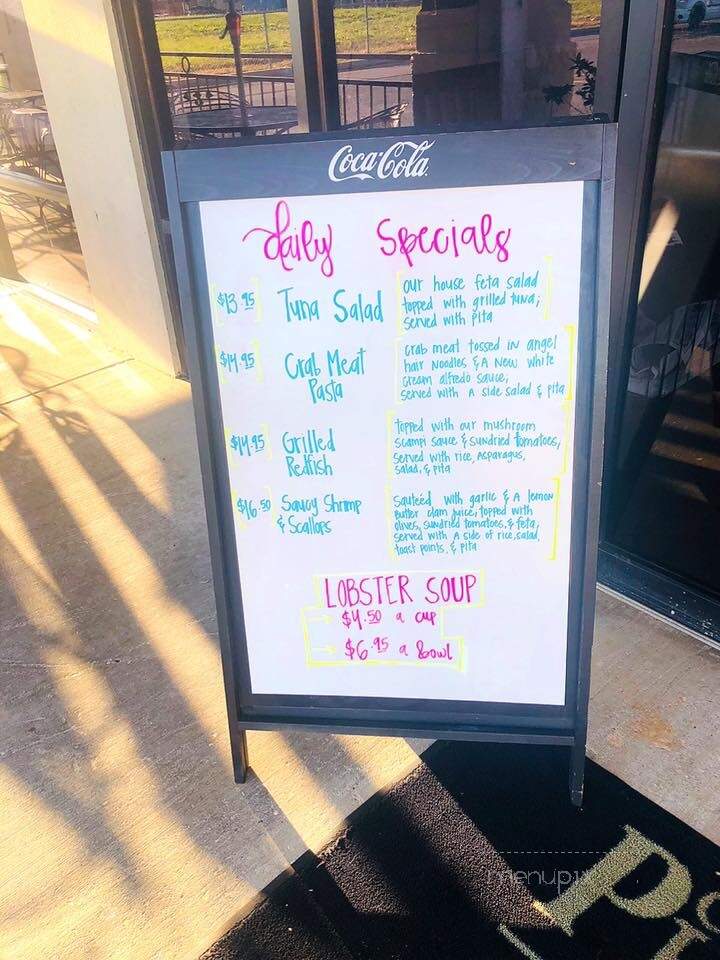 Coca-Cola
daily Specials
$13.95 Tuna Salad
our house feta salad
topped with grilled tuna;
served with pita
$14.95 Crab Meat
Pasta
Crab meat tossed in angel
hair noodles & a new white
cream alfredo sauce,
served with a side salad & pita
$14.95 Grilled
Redfish
topped with our mushroom
scampi sauce & sundried tomatoes,
served with rice, asparagus,
salad, & pita
$16.50 Saucy Shrimp
& Scallops
sautéed with garlic & a lemon
butter clam juice, topped with
olives, sundried tomatoes, & feta,
served with a side of rice, salad,
toast points, & pita
LOBSTER SOUP
$4.50 a cup
$6.95 a bowl
menupix